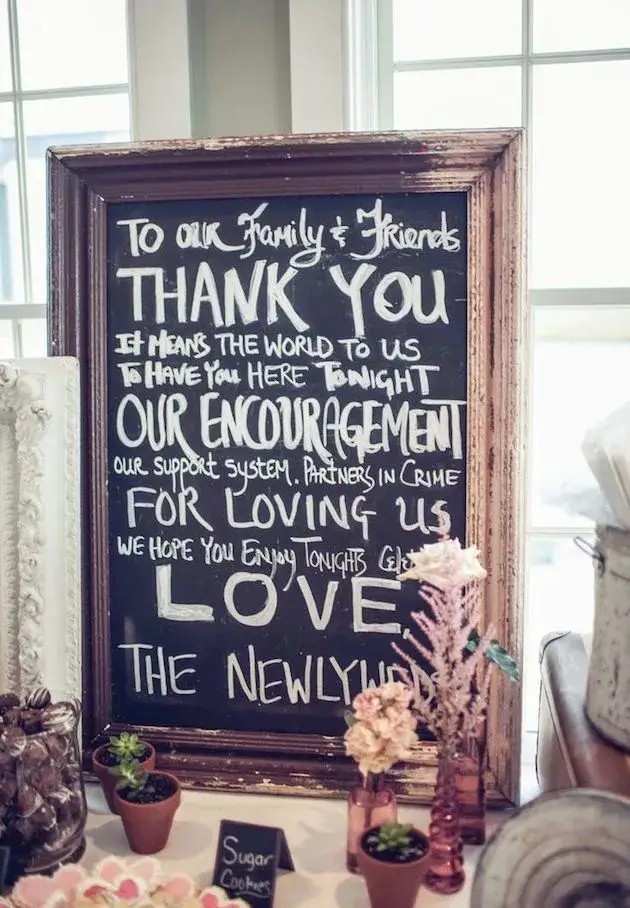 To our Family & Friends
THANK YOU
It Means THE WORLD TO US
To Have You HERE TONIGHT
OUR ENCOURAGEMENT
OUR SUPPORT SYSTEM. PARTNERS IN CRIME
FOR LOVING US
WE HOPE YOU Enjoy TONIGHTS
LOVE,
THE NEWLYWEDS
Sugar
Cookies